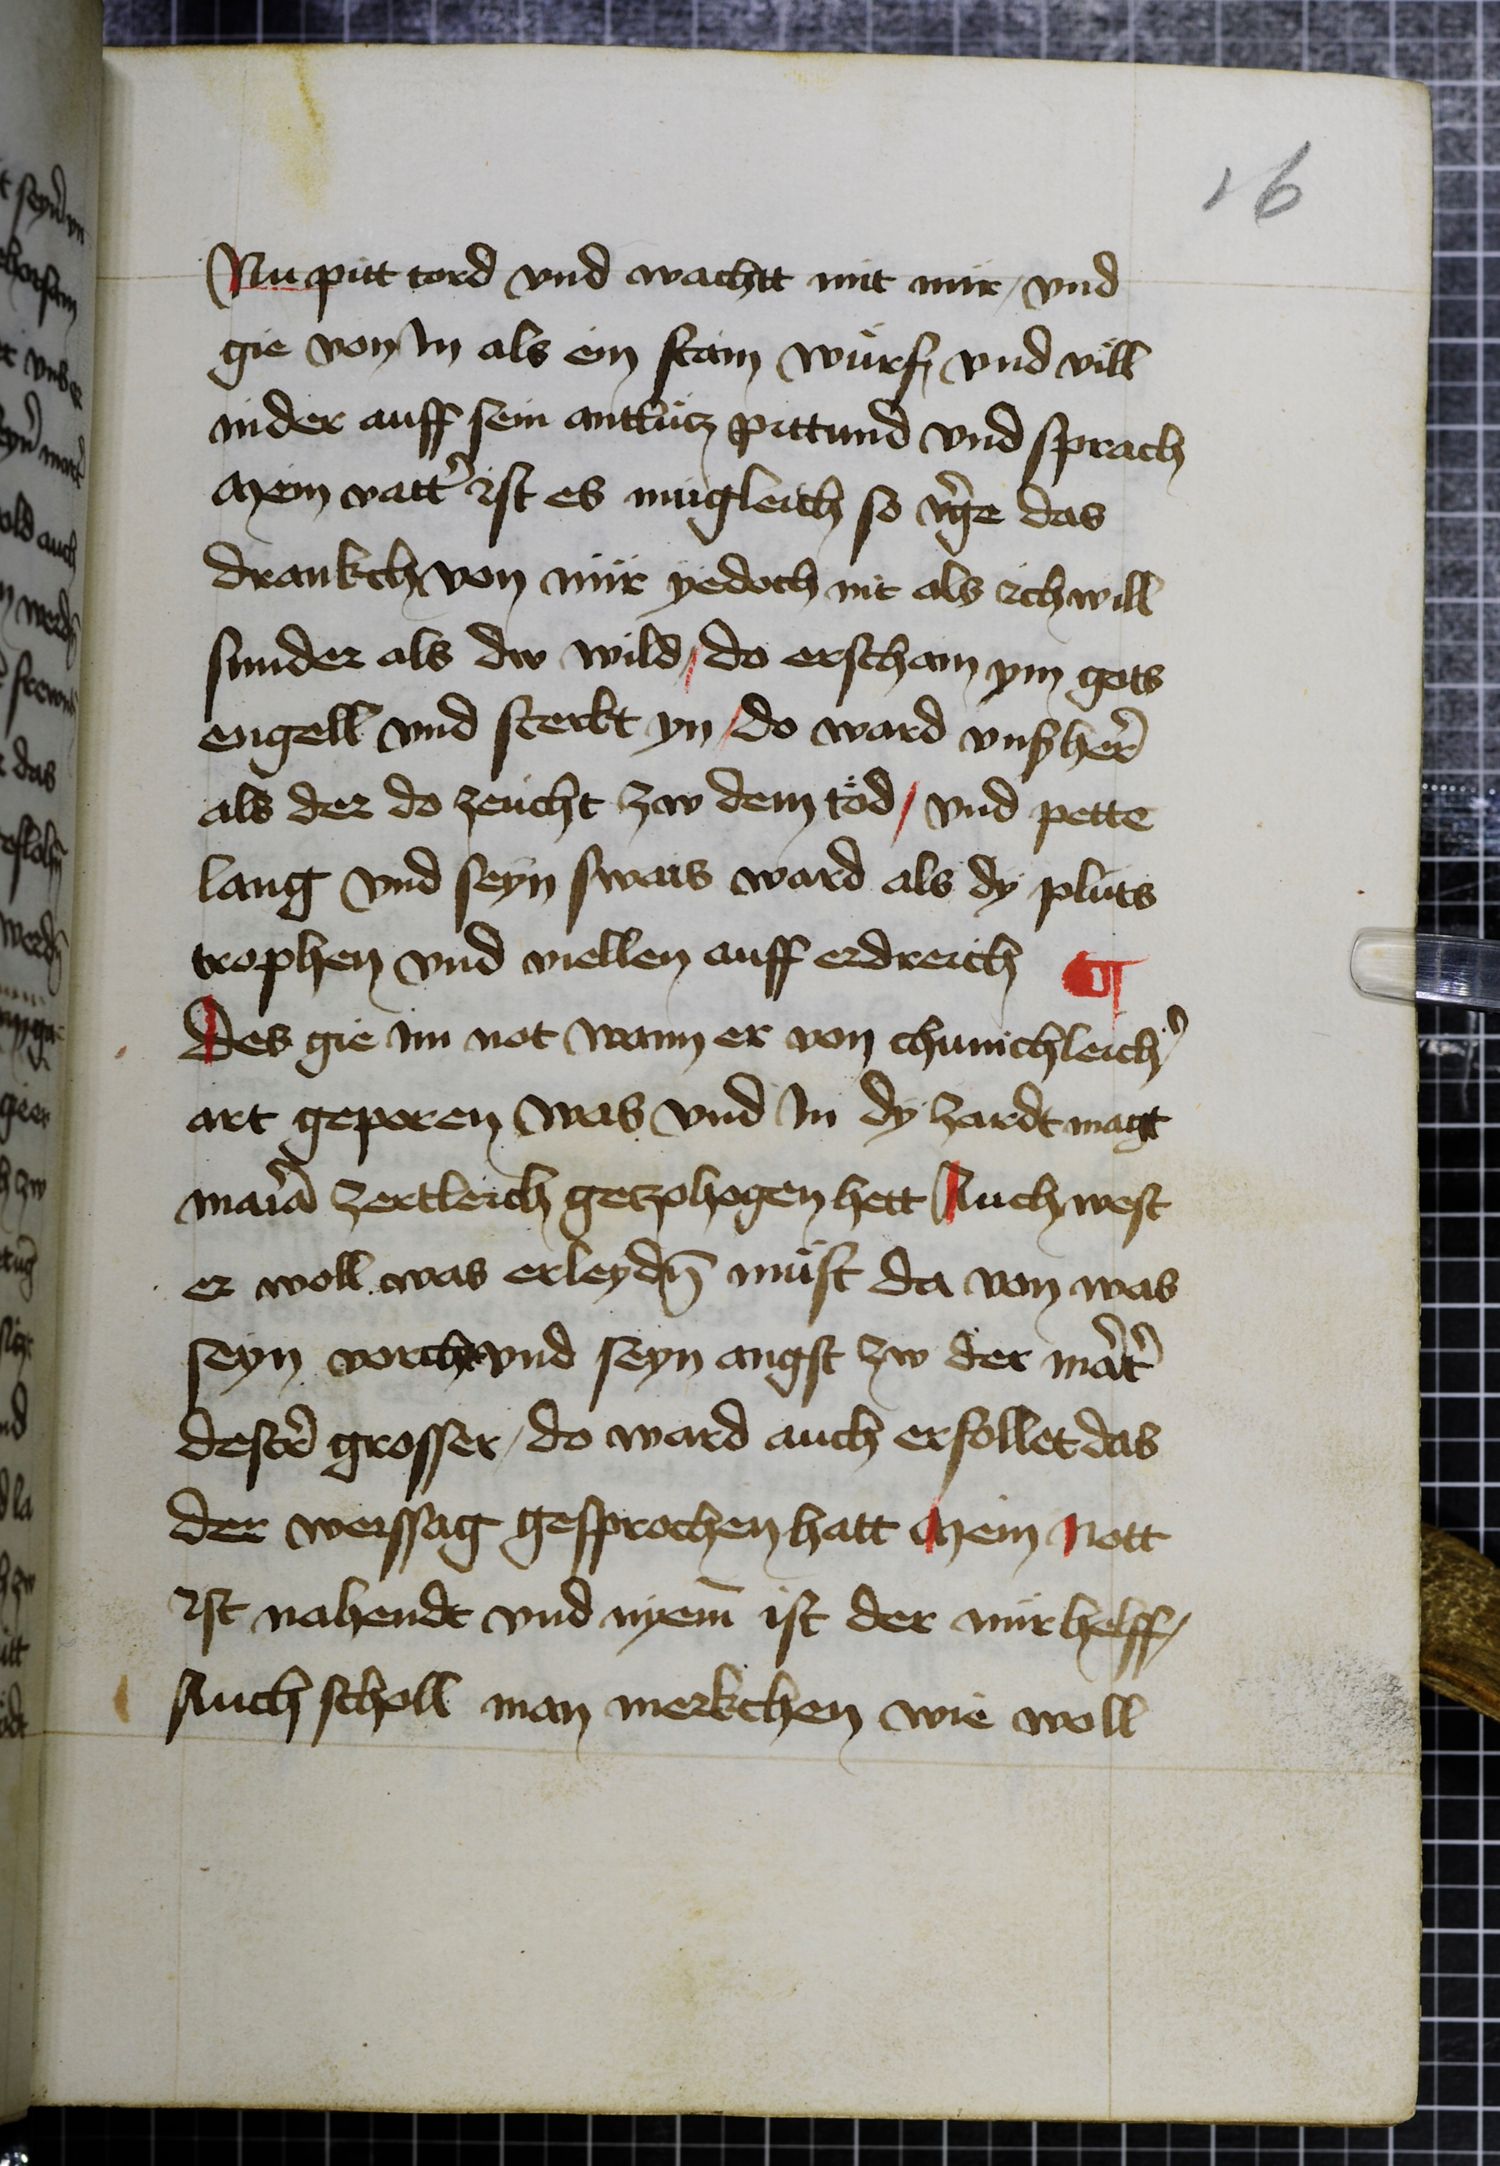 16
Nu pitt tord vnd wachtt mit mir / vnd
gie von in als ein stain wurf / vnd vill
nider auff sein antlutz pittund vnd sprach
Mein vatt' ist es mugleich so v'ge das
drankch von mir yedoch nit als ich will
sunder als dw wild / do erscham ym gots
engell vnd sterkt yn / do ward vnß her'
als der do zeucht zw dem töd / vnd pette
lang vnd seyn swais ward als dy pluts
trophen vnd viellen auff erdreich ¶
Des gie im not wann er von chunichleich'
art geporen was vnd in dy zardt magt
maria zertleich getzohogen hett Auch west
er woll was erleydn̄ müst da von was
seyn vorcht vnd seyn angst zw der mart'
dest' grosser / do ward auch erfollet das
der weissag gesprochen hatt Mein Nott
ist nahendt vnd nyem̄ ist der mir helff /
Auch scholl man merkchen wie woll